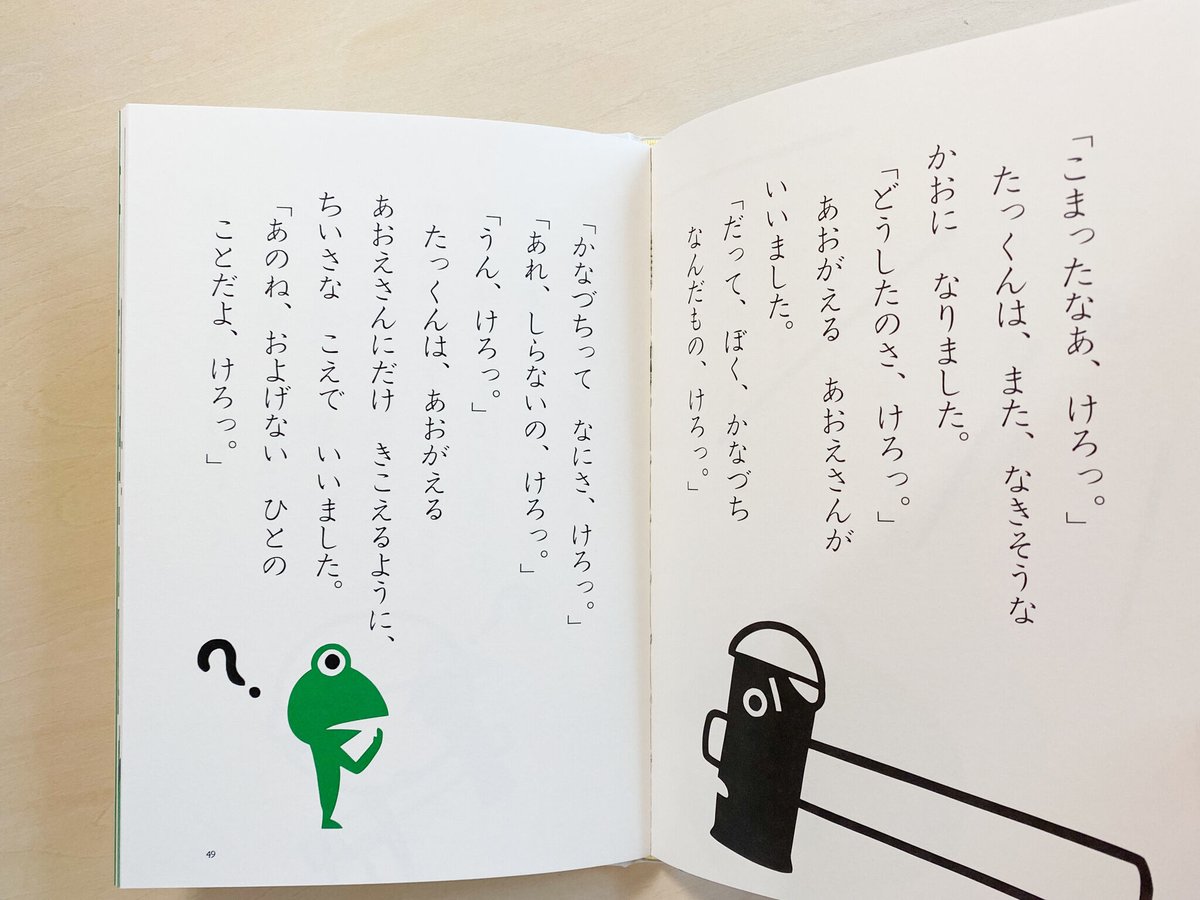 「こまったなあ、けろっ。」
たっくんは、また、なきそうな
かおに　なりました。
「どうしたのさ、けろっ。」
あおがえる　あおえさんが
いいました。
「だって、ぼく、かなづち
なんだもの、けろっ。」
「かなづちって　なにさ、けろっ。」
「あれ、しらないの、けろっ。」
「うん、けろっ。」
たっくんは、あおがえる
あおえさんにだけ　きこえるように、
ちいさな　こえで　いいました。
「あのね、およげない　ひとの
ことだよ、けろっ。」
?
49